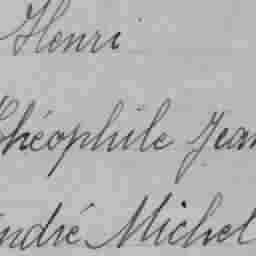 Henri
Théophile Jean
André Michel